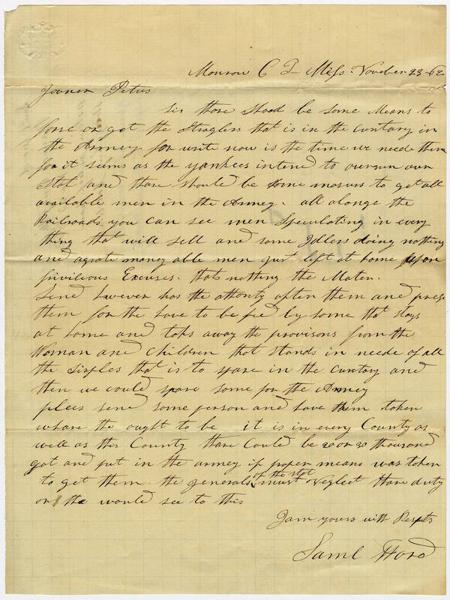 Monrow C T Miss Novober 23 - 62
Governer Petus
Sir thare Shood be Some Means to
forse or get the Straglers that is in the cuntary in
the Armey for write now is the time we need them
for it seims as the yankees intened to overrun our
Stat and thare should be some mesurs to get all
available men in the Armey. all alonge the
Railroads you can see men Speculating in every
thing that will sell and some Idlers doing nothing
and agrate many able men just left at home upon
frivilious Excuses. thats nothing the Mater.
Send however has the athority after them and press
them for the have to be fed by some that stays
at home and taks away the provisons from the
Woman and Children that stands in neede of all
the Suples that is to spare in the Cuntary and
then we could spare some for the Armey
pleas send some person and have them taken
whare the ought to be it is in every County as
well as this County thare could be 20 or 30 thousand
got and put in the armey if proper means was taken
to get them the generals of the Stat must neglect thare duty
or the would see to this
I am yours with Respts
Saml Ford